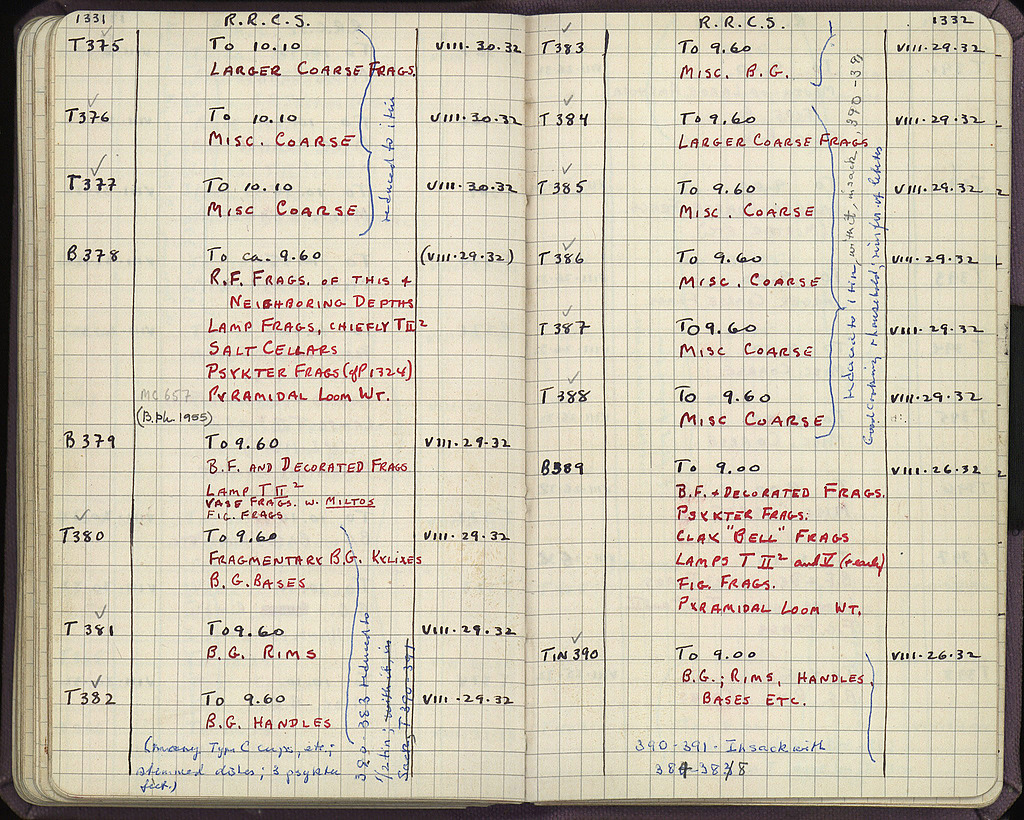 1331
R.R.C.S.
T375 To 10.10 VIII.30.32
LARGER COARSE FRAGS.
T376 To 10.10 VIII.30.32
MISC. COARSE
T377 To 10.10 VIII.30.32
MISC COARSE
reduced to 1 tin
B378 To ca. 9.60 (VIII.29.32)
R.F. FRAGS. OF THIS +
NEIGHBORING DEPTHS
LAMP FRAGS, CHIEFLY T II²
SALT CELLARS
PSYKTER FRAGS (cf P 1324)
MC 657 PYRAMIDAL LOOM WT.
(B.Ph. 1955)
B379 To 9.60 VIII.29.32
B.F. AND DECORATED FRAGS
LAMP T II²
VASE FRAGS. W. MILTOS
FIG. FRAGS
T380 To 9.60 VIII.29.32
FRAGMENTARY B.G. KYLIXES
B.G. BASES
T381 To 9.60 VIII.29.32
B.G. RIMS
T382 To 9.60 VIII.29.32
B.G. HANDLES
380-383 reduced to
1/2 tin; with it, in
Sack, T 390-391
(many Type C cups, etc.;
stemmed dishes; 3 psykter
feet.)
R.R.C.S.
1332
T383 To 9.60 VIII.29.32
MISC. B.G.
T384 To 9.60 VIII.29.32
LARGER COARSE FRAGS
T385 To 9.60 VIII.29.32
MISC. COARSE
T386 To 9.60 VIII.29.32
MISC. COARSE
T387 To 9.60 VIII.29.32
MISC COARSE
T388 To 9.60 VIII.29.32
MISC COARSE
reduced to 1 tin, with it, in sack, 390-391
Good cooking & household; rims of lekanes
B389 To 9.00 VIII.26.32
B.F. + DECORATED FRAGS.
PSYKTER FRAGS.
CLAY "BELL" FRAGS
LAMPS T II² and V (early)
FIG. FRAGS.
PYRAMIDAL LOOM WT.
TIN 390 To 9.00 VIII.26.32
B.G.; RIMS, HANDLES,
BASES ETC.
390-391. In sack with
384-388